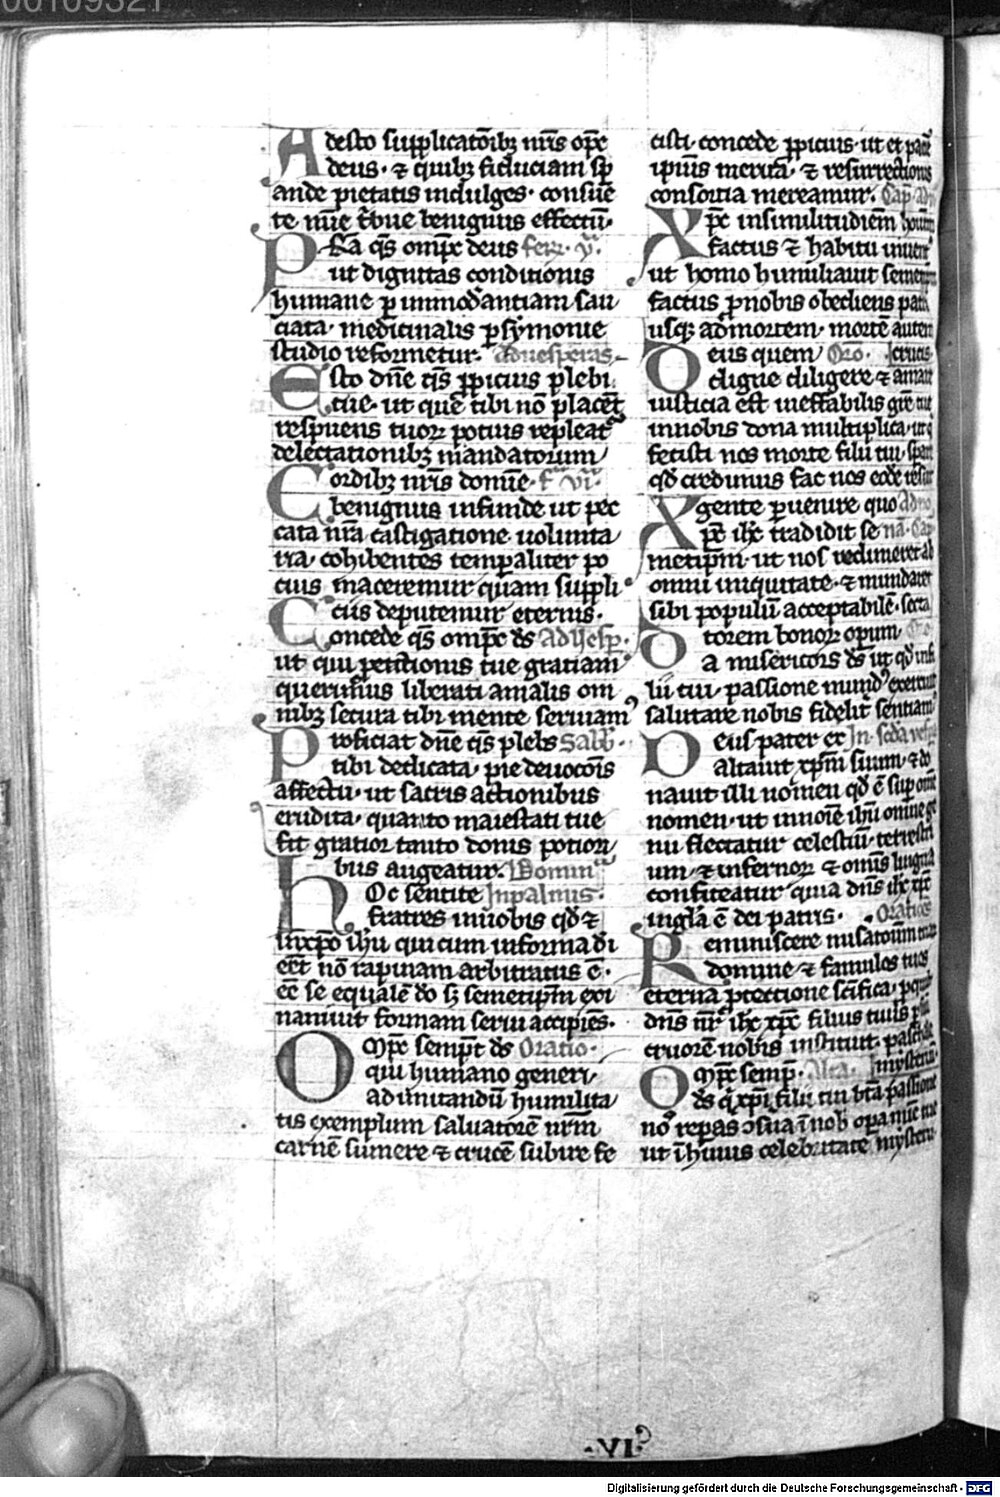 Adesto supplicatōibꝫ nr̄is omp̄c
deus · ⁊ quibꝫ fiduciam sꝑ
ande pietatis indulges · consuē
te mīe t̄bue benignus effectū ·
PRā q̄s omp̄c deus feꝝ · v ·
ut dignitas conditionis
humane ꝑ immodāntiam sau
ciata · medicinalis ꝑsymonie
studio reformetur · Ad vesperas
Esto dn̄e q̄s ꝓpicius plebi
tue · ut que tibi nō placēt
respuens tuoꝝ potius repleat᷑
delectationibꝫ mandatorum
Cordibꝫ nr̄is domīe · f · vi ·
benignus infunde ut pec
cata nr̄a castigatione uolunta
ria cohibentes temꝑaliter po
cius maceremur quam suppli
ciis deputemur eternis ·
Concede q̄s omp̄c ds̄ Ad vesꝑ ·
ut qui ꝓtectionis tue gratiam
querimus liberati a malis om
nibꝫ secura tibi mente seruiam᷒
Proficiat dn̄e q̄s plebs Sabb ·
tibi dedicata · pie deuocōis
affectu · ut sacris actionibus
erudita · quanto maiestati tue
fit gratior tanto donis potiori
bus augeatur · Domin
HOc sentite In palmis ·
fratres in uobis qd̄ ⁊
in xp̄o ih̄u qui cum in forma di
eēt nō rapinam arbitratus ē ·
eē se equalē do sꝫ semetip̄m exi
naniuit formam serui accipiēs ·
Omp̄c sempt̄ ds̄ Oratio ·
qui humano generi
ad imitandū humilita
tis exemplum saluatorē nr̄m
carnē sumere ⁊ crucē subire fe
cisti · concede ꝓpicius · ut et pacīe
ipius merita · ⁊ resurrectionis
consortia mereamur · Cap̄ · Ad
Xp̄c in similitudiem hoīm
factus ⁊ habitu inuent᷒
ut homo humiliauit semetip̄m
factus ꝓ nobis obediens patri
usqꝫ ad mortem · mortē autem
Deus quem Orō · crucis
diligere diligere ⁊ amare
iusticia est ineffabilis grē tue
in nobis dona multiplica · ut q
fecisti nos morte filii tui · sꝑare
qd̄ credimus fac nos eodē resur
gente ꝑuenire quo Ad no
Xp̄c ih̄c tradidit se nā · Cap
metip̄m · ut nos redimeret ab
omni iniquitate · ⁊ mundaret
sibi populū acceptabilē · secta
torem bonoꝝ opum · Oro
Da misericors ds̄ ut qd̄ in fi
lii tui · passione mund᷒ exercuit
salutare nobis fidelit̄ sentiam᷒
Deus pater ex In scda vesp
altauit xp̄m suum · ⁊ do
nauit illi nomen qd̄ ē suꝑ om̄e
nomen · ut in noīe ih̄u omne ge
nu flectatur celestiū · terrestri
um · ⁊ infernoꝝ ⁊ omīs lingua
confiteatur quia dn̄s ih̄c xp̄c
in gl̄a ē dei patris · Oratioēs
Reminiscere misatōum tuaꝝ
domine ⁊ famulos tuos
eterna ꝓtectione scīfica · ꝑ quib
dn̄s nr̄ ih̄c xp̄c filius tuus ꝑ
cruorē nobis instituit · paschale
Omp̄c semp̄ · Alia · mysteriū ·
ds̄ q xp̄i filii tui btā passione
nō reparas ɔserua ī nob opa mīe tue
ut ī huius celebritate mysterii